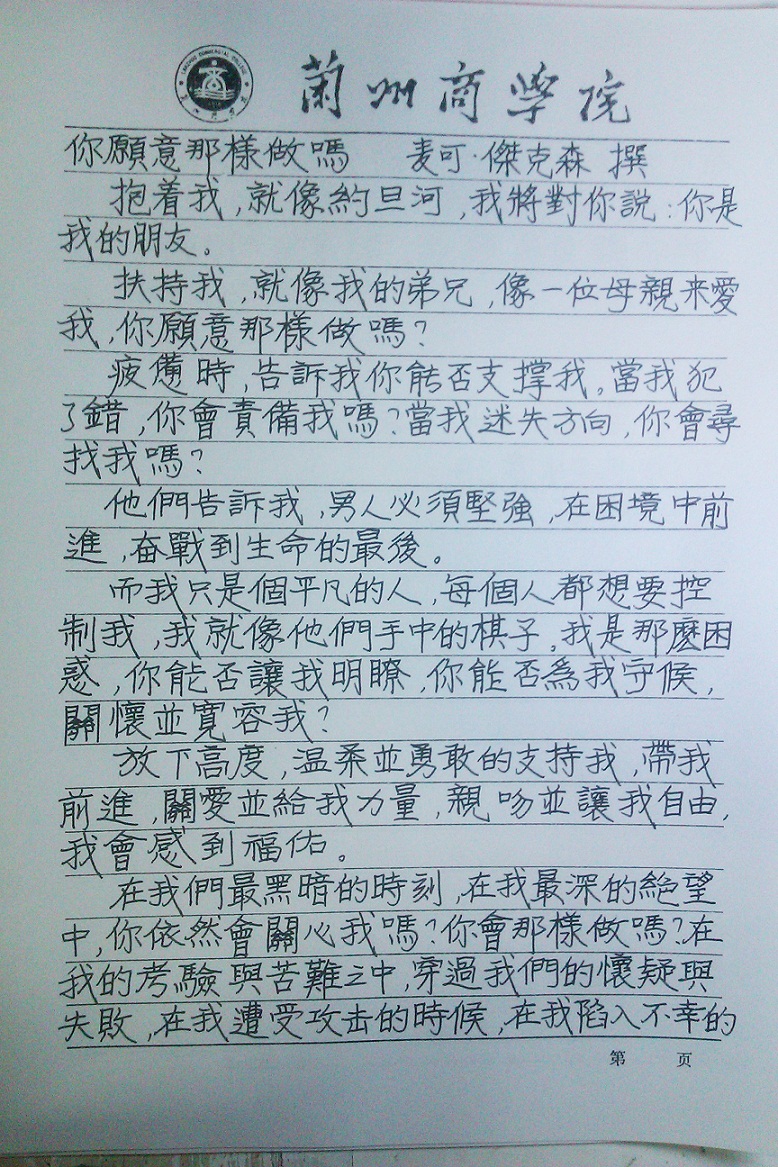 蘭州商學院
你願意那樣做嗎 麦可·傑克森 撰
抱着我,就像約旦河,我將對你說:你是
我的朋友。
扶持我,就像我的弟兄,像一位母親来愛
我,你願意那樣做嗎?
疲憊時,告訴我你能否支撐我。當我犯
了錯,你會責備我嗎?當我迷失方向,你會尋
找我嗎?
他們告訴我,男人必須堅強,在困境中前
進,奋戰到生命的最後。
而我只是個平凡的人,每個人都想要控
制我,我就像他們手中的棋子。我是那麽困
惑,你能否讓我明瞭,你能否為我守候,
關懷並寬容我?
放下高度,温柔並勇敢的支持我,帶我
前進,關愛並給我力量,親吻並讓我自由,
我會感到福佑。
在我們最黑暗的時刻,在我最深的絶望
中,你依然會關心我嗎?你會那樣做嗎?在
我的考驗與苦難之中,穿過我們的懷疑與
失敗,在我遭受攻击的時候,在我陷入不幸的
第 页